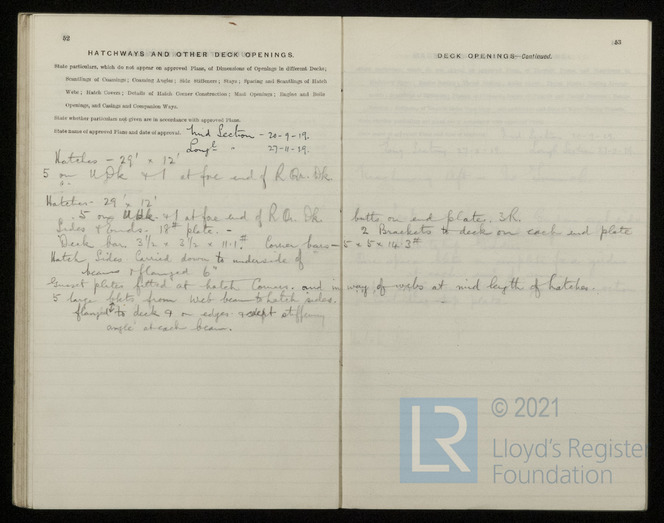 52
HATCHWAYS AND OTHER DECK OPENINGS.
State particulars, which do not appear on approved Plans, of Dimensions of Openings in different Decks;
Scantlings of Coamings; Coaming Angles; Side Stiffeners; Stays; Spacing and Scantlings of Hatch
Webs; Hatch Covers; Details of Hatch Corner Construction; Mast Openings; Engine and Boiler
Openings, and Casings and Companion Ways.
State whether particulars not given are in accordance with approved Plans.
State name of approved Plans and date of approval. Mid Section - 20-9-19.
Longl " 27-11-19.
Hatches - 29' x 12'
5 on U Dk & 1 at fore end of R Qr. Dk
Hatches - 29' x 12'
5 on U Dk & 1 at fore end of R Qr. Dk
Sides & ends. 18# plate. -
Deck bar 3½ x 3½ x 11.1# Corner bars - 5 x 5 x 14.3#
Hatch Sides Carried down to underside of
beams & flanged 6"
Gusset plates fitted at hatch Corners and in way of webs at mid length of hatches.
5 large from web beam to hatch sides.
flanged to deck & on edges stiffening
angle at each beam.
53
DECK OPENINGS—Continued.
butts on end plates. 3R.
2 Brackets to deck on each end plate
© 2021
LR
Lloyd's Register
Foundation